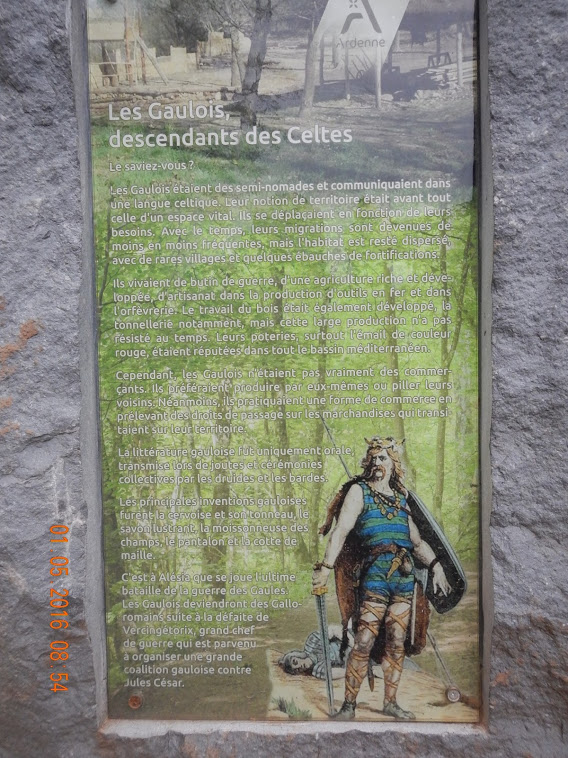 Ardenne
Les Gaulois,
descendants des Celtes
Le saviez-vous ?
Les Gaulois étaient des semi-nomades et communiquaient dans
une langue celtique. Leur notion de territoire était avant tout
celle d'un espace vital. Ils se déplaçaient en fonction de leurs
besoins. Avec le temps, leurs migrations sont devenues de
moins en moins fréquentes, mais l'habitat est resté dispersé,
avec de rares villages et quelques ébauches de fortifications.
Ils vivaient de butin de guerre, d'une agriculture riche et déve-
loppée, d'artisanat dans la production d'outils en fer et dans
l'orfèvrerie. Le travail du bois était également développé, la
tonnellerie notamment, mais cette large production n'a pas
résisté au temps. Leurs poteries, surtout l'émail de couleur
rouge, étaient réputées dans tout le bassin méditerranéen.
Cependant, les Gaulois n'étaient pas vraiment des commer-
çants. Ils préféraient produire par eux-mêmes ou piller leurs
voisins. Néanmoins, ils pratiquaient une forme de commerce en
prélevant des droits de passage sur les marchandises qui transi-
taient sur leur territoire.
La littérature gauloise fut uniquement orale,
transmise lors de joutes et cérémonies
collectives par les druides et les bardes.
Les principales inventions gauloises
furent la cervoise et son tonneau, le
savon lustrant, la moissonneuse des
champs, le pantalon et la cotte de
maille.
C'est à Alésia que se joue l'ultime
bataille de la guerre des Gaules.
Les Gaulois deviendront des Gallo-
romains suite à la défaite de
Vercingétorix, grand chef
de guerre qui est parvenu
à organiser une grande
coalition gauloise contre
Jules César.
01 05 2016 08:54